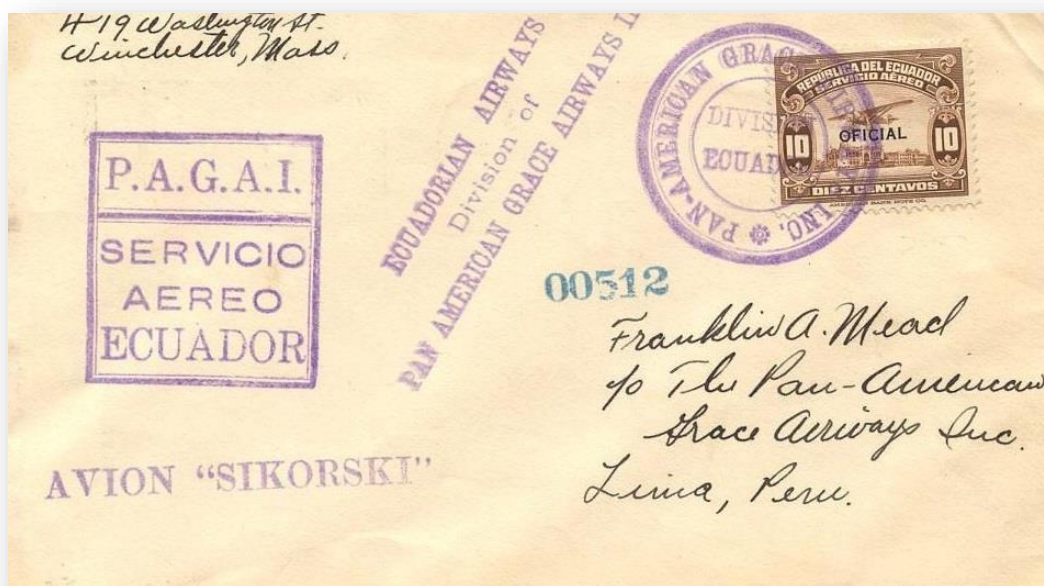 419 Washington St.
Winchester, Mass.
P.A.G.A.I.
SERVICIO
AEREO
ECUADOR
ECUADORIAN AIRWAYS
Division of
PAN AMERICAN GRACE AIRWAYS I
PAN-AMERICAN GRACE INC.
DIVIS
ECUAD
REPÚBLICA DEL ECUADOR
SERVICIO AÉREO
OFICIAL
10 10
DIEZ CENTAVOS
AMERICAN BANK NOTE CO.
00512
Franklin A. Mead
c/o The Pan-American
Grace Airways Inc.
Lima, Peru.
AVION "SIKORSKI"